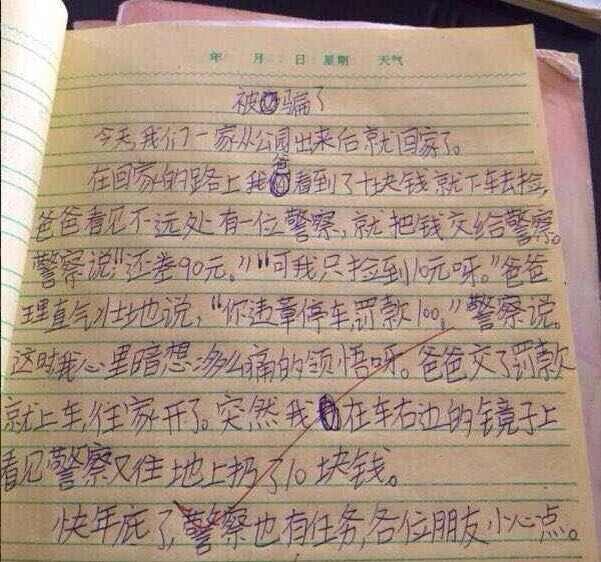 年 月 日 星期 天气
被骗了
今天,我们一家从公园出来后就回家了。
在回家的路上我爸看到了十块钱,就下车去捡,
爸爸看见不远处有一位警察,就把钱交给警察。
警察说:“还差90元。”“可我只捡到10元呀。”爸爸
理直气壮地说,“你违章停车,罚款100,”警察说。
这时我心里暗想:多么痛的领悟呀。爸爸交了罚款
就上车,往家开了。突然我在车右边的镜子上
看见警察又往地上扔了10块钱。
快年底了,警察也有任务,各位朋友小心点。